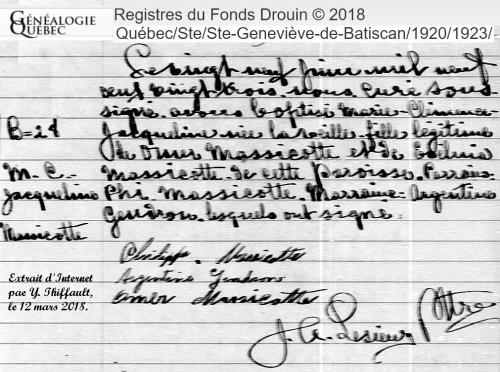 GÉNÉALOGIE
QUÉBEC
Registres du Fonds Drouin © 2018
Québec/Ste/Ste-Geneviève-de-Batiscan/1920/1923/
Le vingt neuf juin mil neuf
cent vingt trois, nous curé sous-
signé, avons baptisé Marie-Clémence
B=28
Jacqueline née la veille, fille légitime
de Omer Massicotte et de
M.-C.-
Massicotte de cette paroisse. Parrain-
Jacqueline
Phi. Massicotte. Marraine-Argentine
Gendron, lesquels ont signé.
Massicotte
Philipp. Massicotte
Argentine Gendron
Omer Massicotte
J. A. Lesieur Ptre
Extrait d'Internet
pae Y. Thiffault,
le 12 mars 2018.